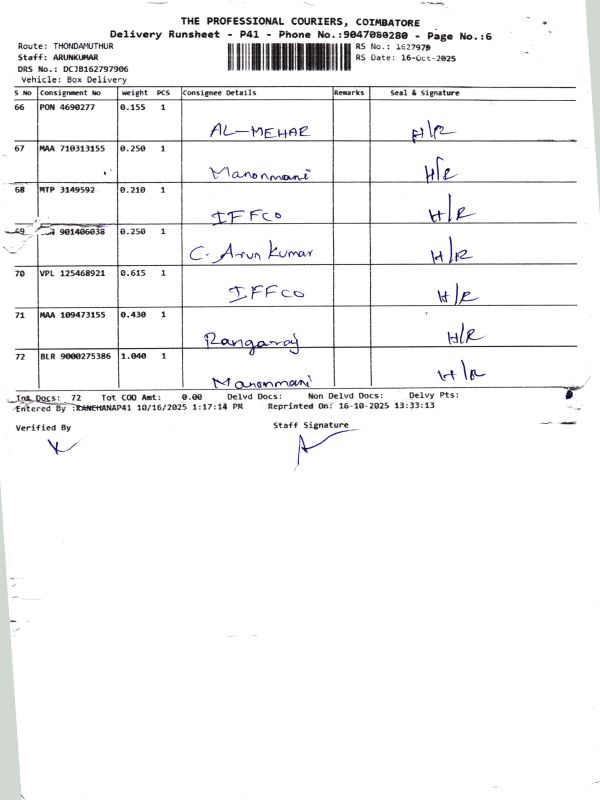 THE PROFESSIONAL COURIERS, COIMBATORE
Delivery Runsheet - P41 - Phone No.:9047080280 - Page No.:6
Route: THONDAMUTHUR
RS No.: 1627979
Staff: ARUNKUMAR
RS Date: 16-Oct-2025
DRS No.: DCJB162797906
Vehicle: Box Delivery
S No Consignment No Weight PCS Consignee Details Remarks Seal & Signature
66 PON 4690277 0.155 1
AL-MEHAR H/R
67 MAA 710313155 0.250 1
Manonmani H/R
68 MTP 3149592 0.210 1
IFFCO H/R
69 901406038 0.250 1
C. Arun Kumar H/R
70 VPL 125468921 0.615 1
IFFCO H/R
71 MAA 109473155 0.430 1
Rangaraj H/R
72 BLR 9000275386 1.040 1
Manonmani H/R
Tot Docs: 72 Tot COD Amt: 0.00 Delvd Docs: Non Delvd Docs: Delvy Pts:
Entered By :KANCHANAP41 10/16/2025 1:17:14 PM Reprinted On: 16-10-2025 13:33:13
Verified By Staff Signature